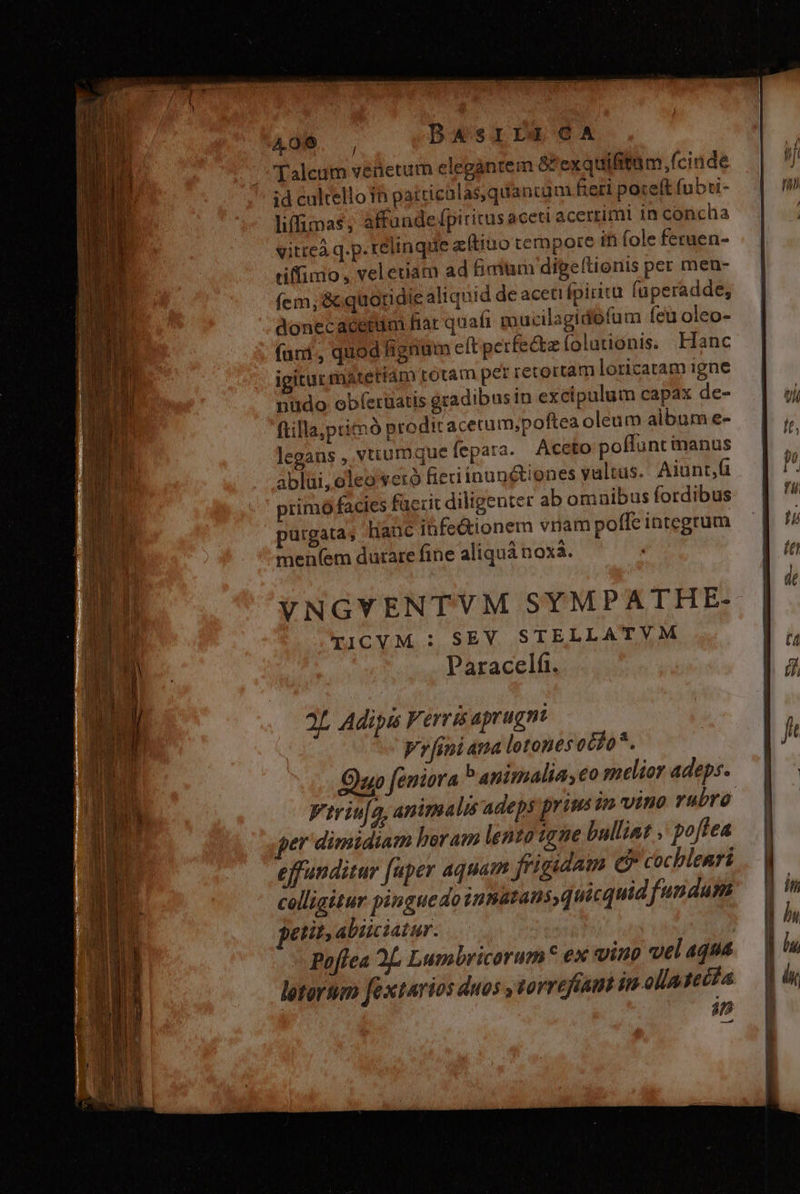 406 BASILICA
Talcum venetum elegantem & exquisitum, scinde
id cultello in particulas, quantum fieri potest subti-
lissimas, affunde spiritus aceti acerrimi in concha
vitreâ q.p. relinque æstiuo tempore in sole feruen-
tissimo, vel etiam ad fimum digestionis per men-
sem, & quotidie aliquid de aceti spiritu superadde,
donec acetum fiat quasi mucilaginosum seu oleo-
sum, quod signum est perfectæ solutionis. Hanc
igitur materiam totam per retortam loricatam igne
nudo obseruatis gradibus in excipulum capax de-
stilla, primò prodit acetum, postea oleum album e-
legans, vtrumque separa. Aceto possunt manus
ablui, oleo verò fieri inunctiones vultus. Aiunt, si
primo facies fuerit diligenter ab omnibus sordibus
purgata, hanc infectionem vnam posse integrum
mensem durare sine aliquâ noxâ.
VNGVENTVM SYMPATHE-
TICVM : SEV STELLATVM
Paracelsi.
♃ Adipis Verris aprugni
Vrsini ana lotones octo ᵃ.
Quo seniora ᵇ animalia, eo melior adeps.
Vtriusq, animalis adeps prius in vino rubro
per dimidiam horam lento igne bulliat, postea
effunditur super aquam frigidam & cochleari
colligitur pinguedo innatans, quicquid fundum
petit, abiiciatur.
Postea ♃ Lumbricorum ᶜ ex vino vel aqua
lotorum sextarios duos, torrefiant in olla tecta
in